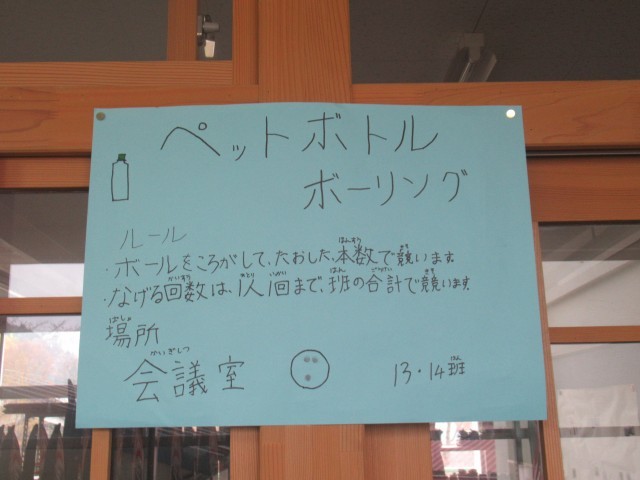 ペットボトル
ボーリング
ルール
・ボールをころがして、たおした、本数で競います。
・なげる回数は、1人1回まで、班の合計で競います。
場所
会議室
13・14班